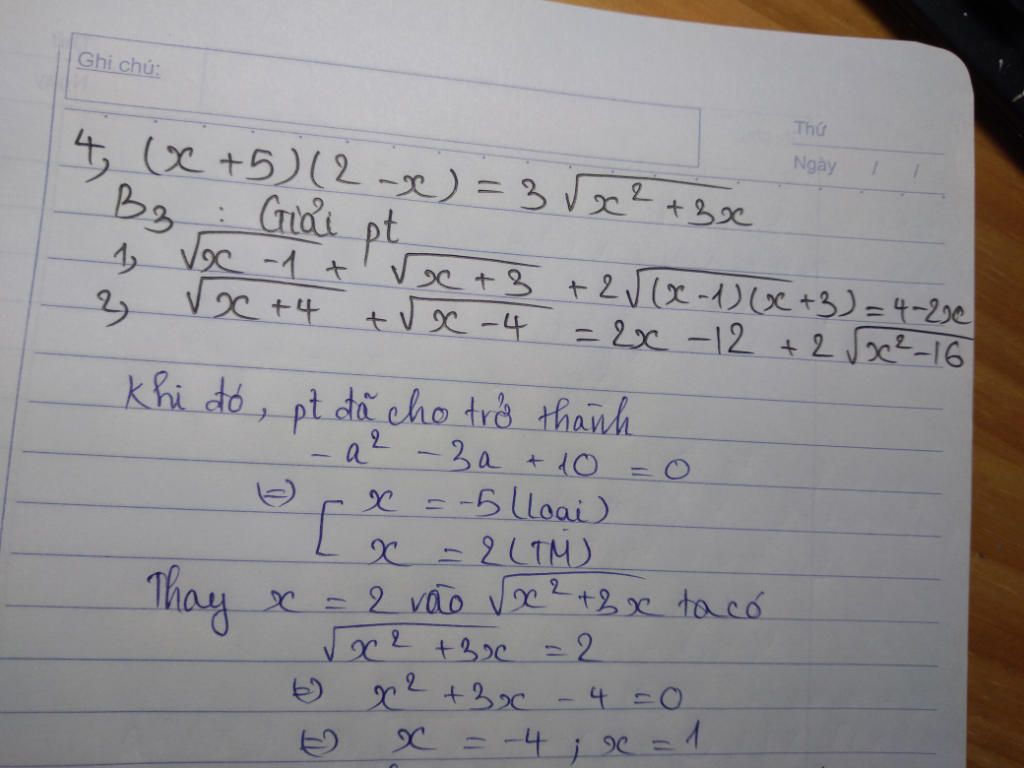 Ghi chú:
Thứ
Ngày / /
4, (x + 5)(2 - x) = 3 √(x² + 3x)
B3 : Giải pt
1, √(x - 1) + √(x + 3) + 2√((x-1)(x+3)) = 4-2x
2, √(x + 4) + √(x - 4) = 2x - 12 + 2 √(x²-16)
Khi đó, pt đã cho trở thành
- a² - 3a + 10 = 0
(=) [ x = -5 (loại)
x = 2 (TM)
Thay x = 2 vào √(x²+3x) ta có
√(x² + 3x) = 2
(=) x² + 3x - 4 = 0
(=) x = -4 ; x = 1